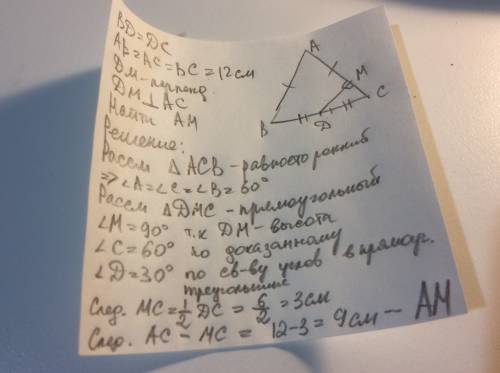 BD = DC
AB = AC = BC = 12 см
DM - перпенд.
DM ⊥ AC
Найти AM
Решение:
Рассм △ACB - равносторонний
=> ∠A = ∠C = ∠B = 60°
Рассм △DMC - прямоугольный
∠M = 90° т.к DM - высота
∠C = 60° по доказанному
∠D = 30° по св-ву углов в прямоуг.
треугольнике
След. MC = 1/2 DC = 6/2 = 3 см
След. AC - MC = 12 - 3 = 9 см - AM
A
M
C
D
B